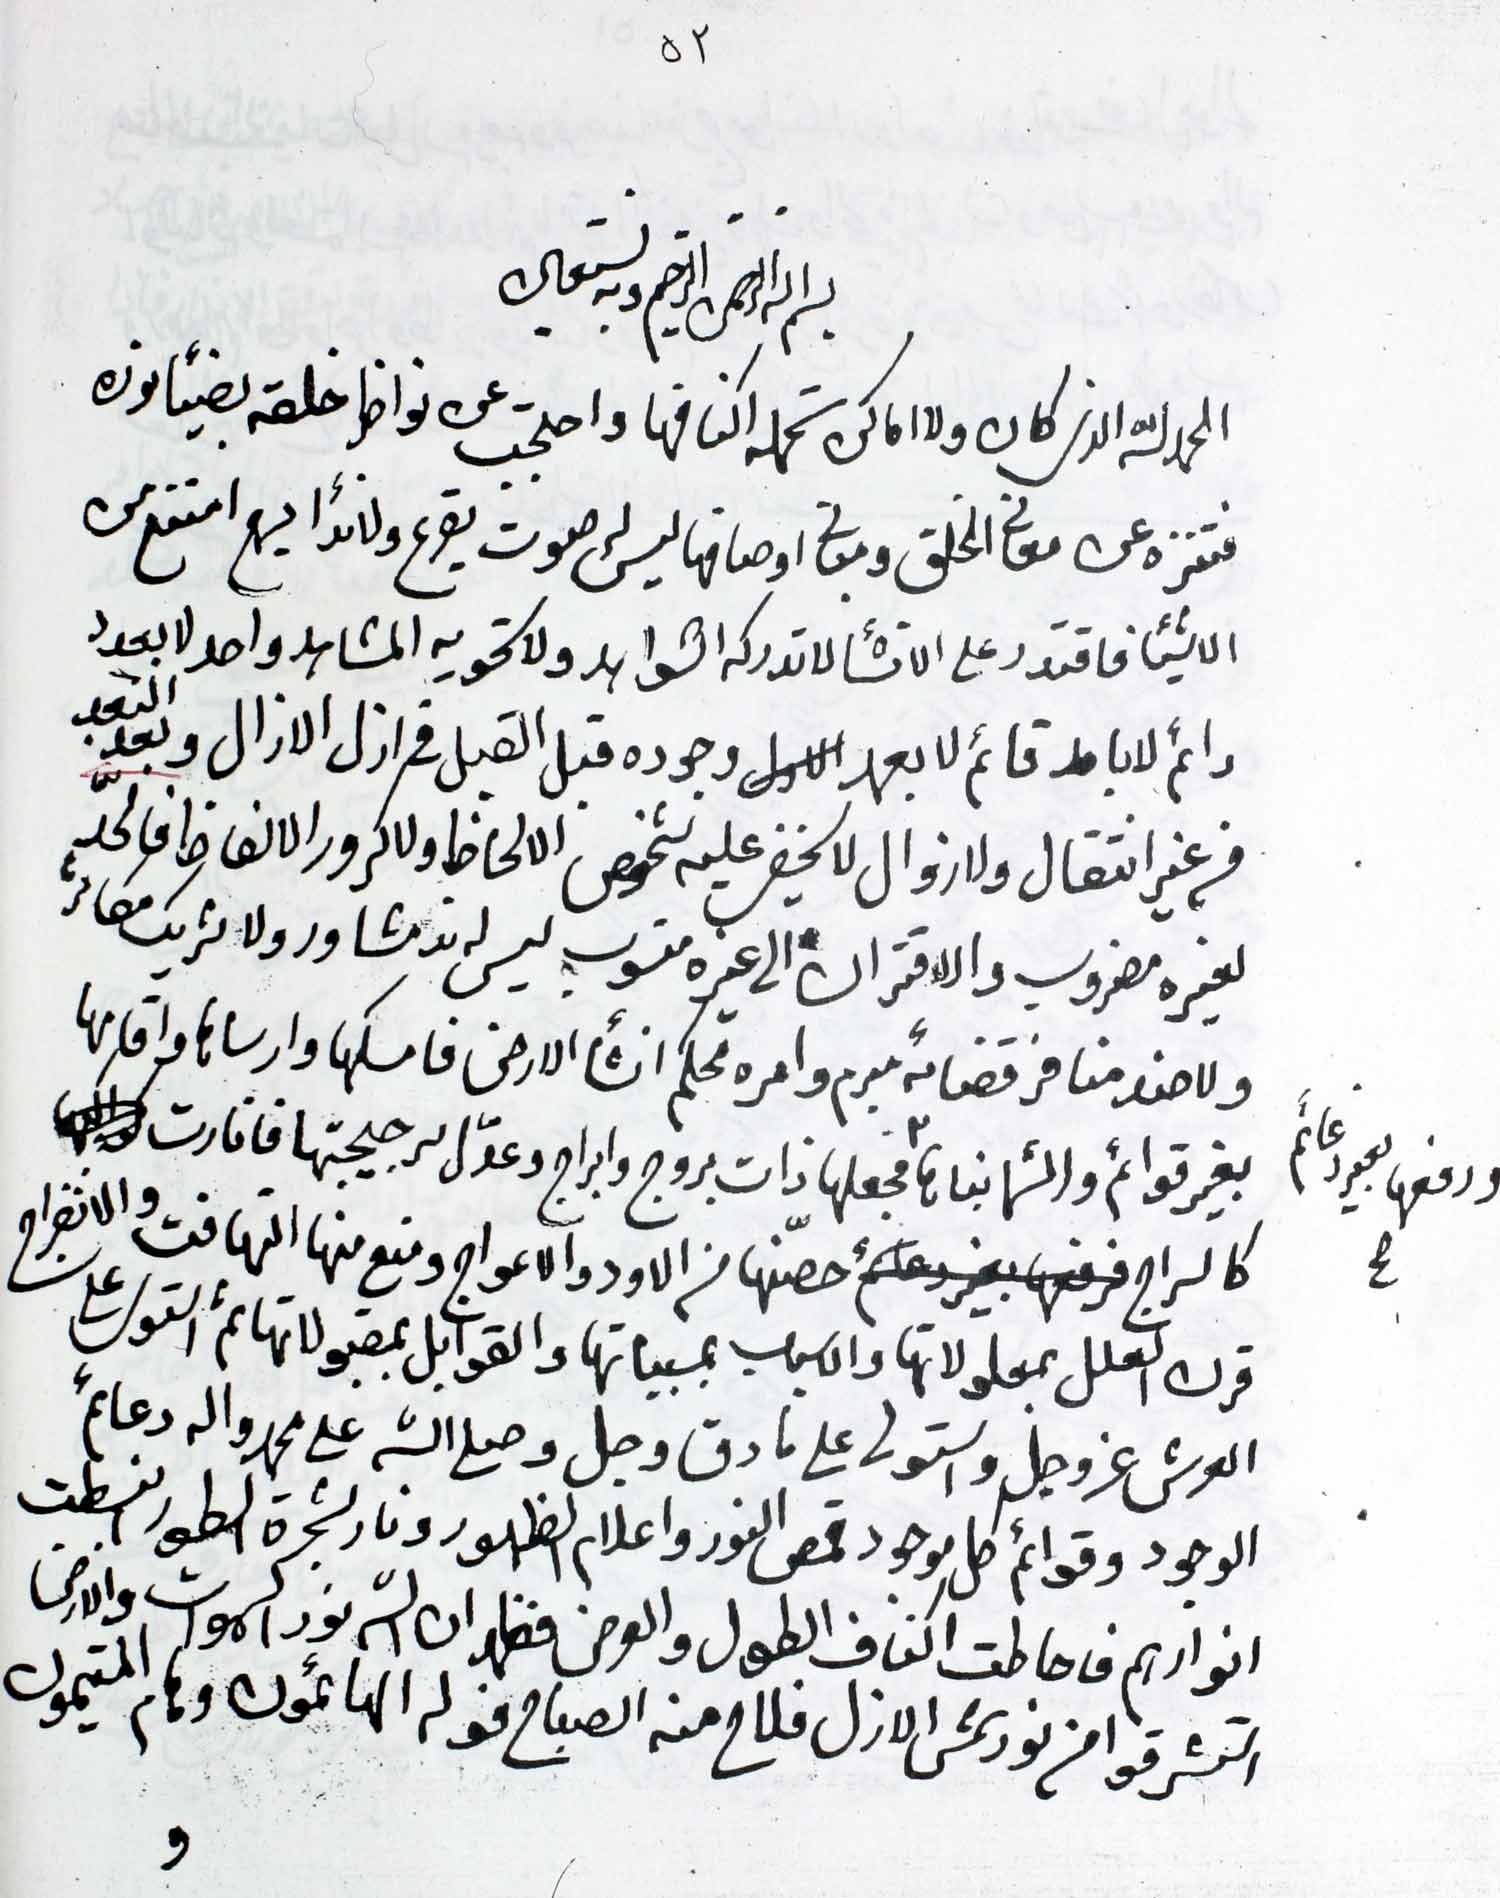 ٥٢
بسم الله الرحمن الرحيم وبه نستعين
الحمد لله الذى كان ولا اماكن تحمله اكنافها واحتجب عن نواظر خلقه بضيأ نوره
فتنزه عن معانى الخلق ومعانى اوصافها ليس له صوت يقرع ولا ندأ يسمع امتنع من
الاشيأ فاقتدر على الانشأ لا تدركه الشواهد ولا تحويه المشاهد واحد لا بعدد
دائم لا بامد قائم لا بعمد وجوده قبل القبل فى ازل الازال وبعد البعد
من غير انتقال ولا زوال لا يخفى عليه شخوص الالحاظ ولا كرور الالفاظ فالحد
لغيره مضروب والاقتران الى غيره منسوب ليس له ند مشاور ولا شريك مكاثر
ولا ضد منافر قضائه مبرم وامره محكم انشأ الارض فامسكها وارساها واقامها
بغير قوائم ورفعها بغير دعائم والسمأ بناها فجعلها ذات بروج وابراج وعدل فانارت
كالسراج فرفعها بغير دعائم حصنها من الاود والاعوجاج ومنع منها التهافت والانفراج
قرن العلل بمعلولاتها والاسباب بمسبباتها والقوابل بمقبولاتها ثم استوى على
العرش عز وجل واستولى على ما دق وجل وصلى الله على محمد واله دعائم
الوجود وقوائم كل موجود قمص النور واعلام الظهور ونار شجرة الطور انبسطت
انوارهم فاحاطت اكناف الطول والعرض فظهر ان الله نور السموات والارض
اشرقوا من نور شمس الازل فلاح منه الصباح فوله الهائمون وهام المتيمون
و